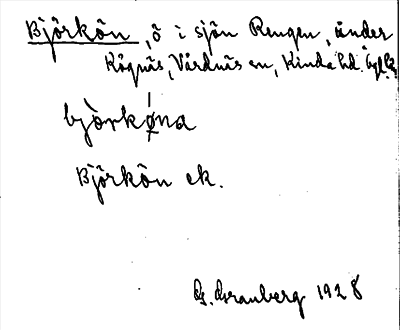 Björkön, ö i sjön Rengen, under
Rögnäs, Vårdnäs sn, Kinda hd.
bjö̀rkø̀na
Björkön ek.
G. Granberg 1928